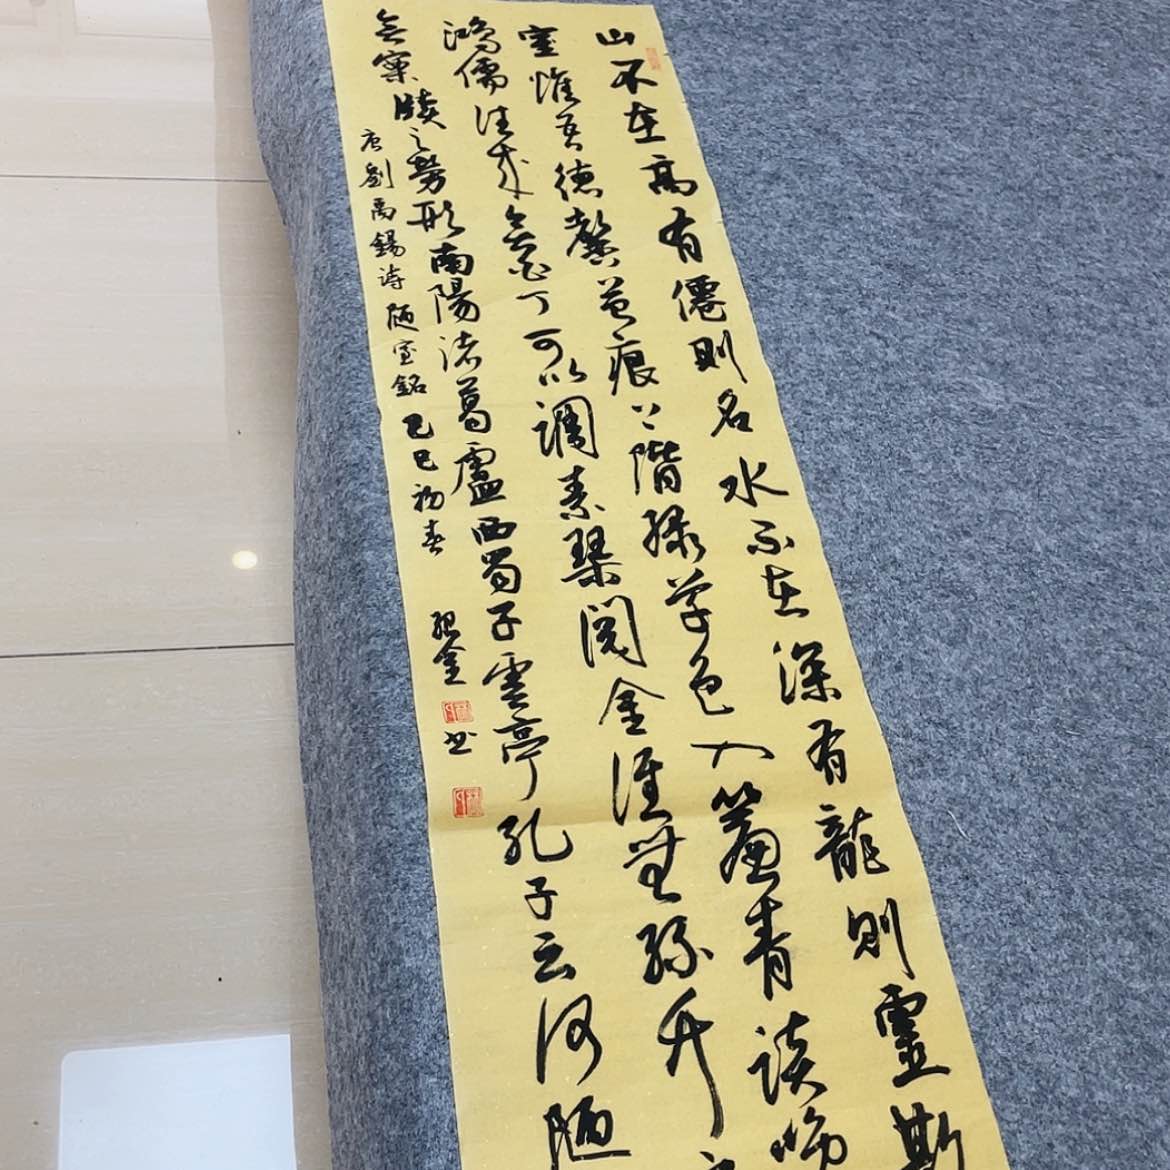 山不在高有僊則名水不在深有龍則靈斯
室惟吾德馨苔痕上階緑草色入簾青談
鴻儒往來無白丁可以調素琴閱金經無絲竹
無案牘之勞形南陽諸葛廬西蜀子雲亭孔子云何陋
唐劉禹錫詩陋室銘乙巳初春
書